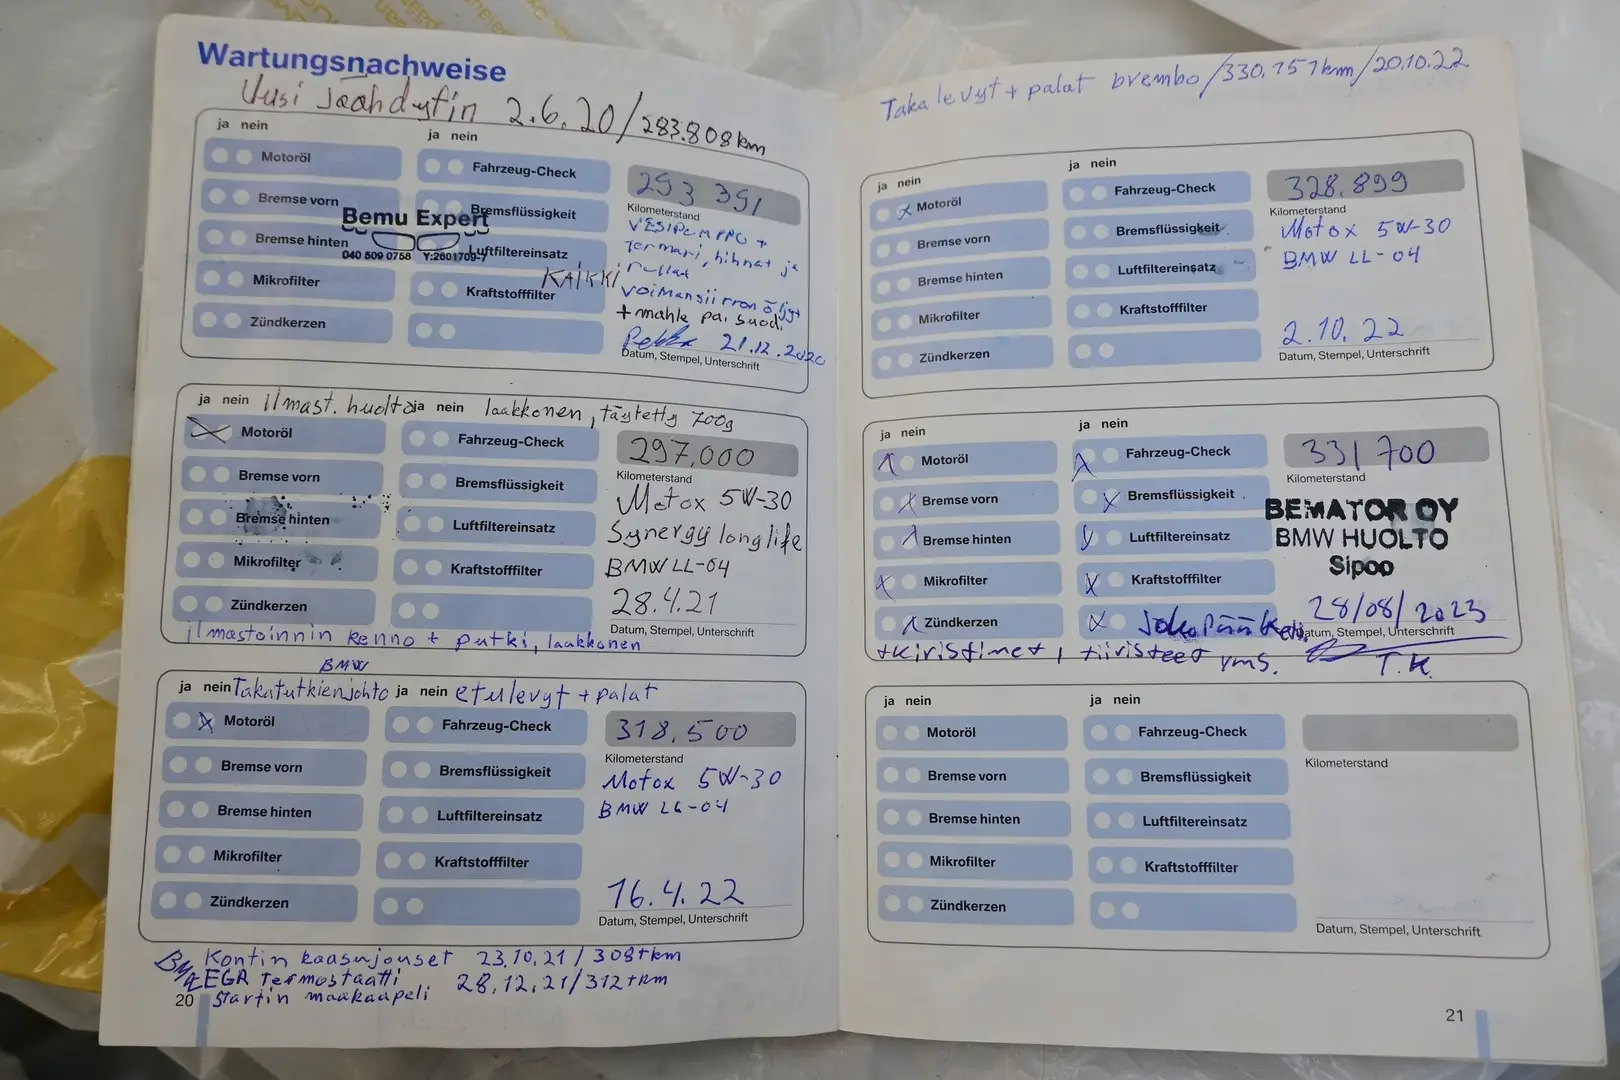 Wartungsnachweise
Uusi Jäähdytin 2.6.20/283.808km
ja nein
ja nein
Motoröl
Fahrzeug-Check
293 391
Kilometerstand
Bremse vorn
Bremsflüssigkeit
Bemu Expert
VESIPUMPPU +
Termari, hihnat ja
rullat
Bremse hinten
Luftfiltereinsatz
040 509 0758 Y:2601709-7
KAIKKI
Mikrofilter
Kraftstofffilter
voimansiirron öljyt
+ mahle pa. suod.
Zündkerzen
Pekka 21.12.2020
Datum, Stempel, Unterschrift
ja nein ilmast. huolto ja nein laakkonen, täytetty 700g
Motoröl
Fahrzeug-Check
297.000
Kilometerstand
Bremse vorn
Bremsflüssigkeit
Motox 5W-30
Bremse hinten
Luftfiltereinsatz
Synergy longlife
Mikrofilter
Kraftstofffilter
BMW LL-04
Zündkerzen
28.4.21
Datum, Stempel, Unterschrift
ilmastoinnin kenno + putki, laakkonen
BMW
ja nein Takatutkienjohto ja nein etulevyt + palat
Motoröl
Fahrzeug-Check
318.500
Kilometerstand
Bremse vorn
Bremsflüssigkeit
Motox 5W-30
BMW LL-04
Bremse hinten
Luftfiltereinsatz
Mikrofilter
Kraftstofffilter
Zündkerzen
16.4.22
Datum, Stempel, Unterschrift
BMW Kontin kaasujouset 23.10.21/308tkm
EGR Termostaatti 28.12.21/312tkm
startin maakaapeli
20
Takalevyt + palat brembo/330.757km/20.10.22
ja nein
ja nein
Motoröl
Fahrzeug-Check
328.899
Kilometerstand
Bremse vorn
Bremsflüssigkeit
Motox 5W-30
Bremse hinten
Luftfiltereinsatz
BMW LL-04
Mikrofilter
Kraftstofffilter
Zündkerzen
2.10.22
Datum, Stempel, Unterschrift
ja nein
ja nein
Motoröl
Fahrzeug-Check
331 700
Kilometerstand
Bremse vorn
Bremsflüssigkeit
BEMATOR OY
Bremse hinten
Luftfiltereinsatz
BMW HUOLTO
Sipoo
Mikrofilter
Kraftstofffilter
Zündkerzen
28/08/2023
Datum, Stempel, Unterschrift
+kiristimet, tiivisteet yms. T.K.
ja nein
ja nein
Motoröl
Fahrzeug-Check
Kilometerstand
Bremse vorn
Bremsflüssigkeit
Bremse hinten
Luftfiltereinsatz
Mikrofilter
Kraftstofffilter
Zündkerzen
Datum, Stempel, Unterschrift
21